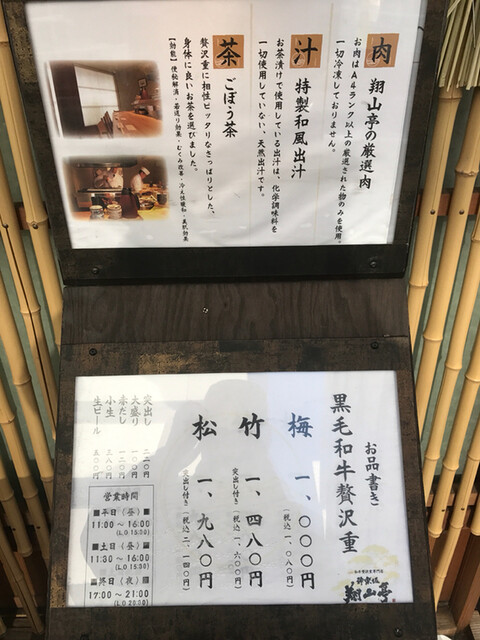 肉 翔山亭の厳選肉
お肉はA4ランク以上の厳選された物のみを使用。
一切冷凍しておりません。
汁 特製和風出汁
お茶漬けで使用している出汁は、化学調味料を
一切使用していない、天然出汁です。
茶 ごぼう茶
贅沢重に相性ピッタリなさっぱりとした、
身体に良いお茶を選びました。
【効能】便秘解消・若返り効果・むくみ改善・冷え性緩和・美肌効果
お品書き
黒毛和牛贅沢重
梅 一、〇〇〇円
(税込 一、〇八〇円)
竹 一、四八〇円
突出し付き(税込 一、六〇〇円)
松 一、九八〇円
突出し付き(税込 二、一四〇円)
突出し 二二〇円
大盛り 一〇〇円
赤だし 一二〇円
小生 三八〇円
生ビール 五〇〇円
営業時間
■平日(昼)■
11:00～16:00
(LO 15:30)
■土日(昼)■
11:30～16:00
(LO 15:30)
■終日(夜)■
17:00～21:00
(LO 20:00)
翔山亭